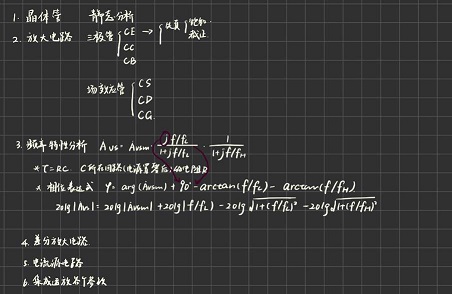 1. 晶体管 静态分析
2. 放大电路 三极管 { CE → { 失真 { 饱和
CC 截止
CB
场效应管 { CS
CD
CG
3. 频率特性分析 Aus = Ausm · jf/fL / 1+jf/fL · 1 / 1+jf/fH
* τ=RC C所在回路(电源置零后)的电阻R
* 相位表达式 φ= arg(Ausm) + 90° - arctan(f/fL) - arctan(f/fH)
20lg|Aus| = 20lg|Ausm| + 20lg|f/fL| - 20lg√1+(f/fL)² - 20lg√1+(f/fH)²
4. 差分放大电路
5. 电流源电路
6. 集成运放各个参数